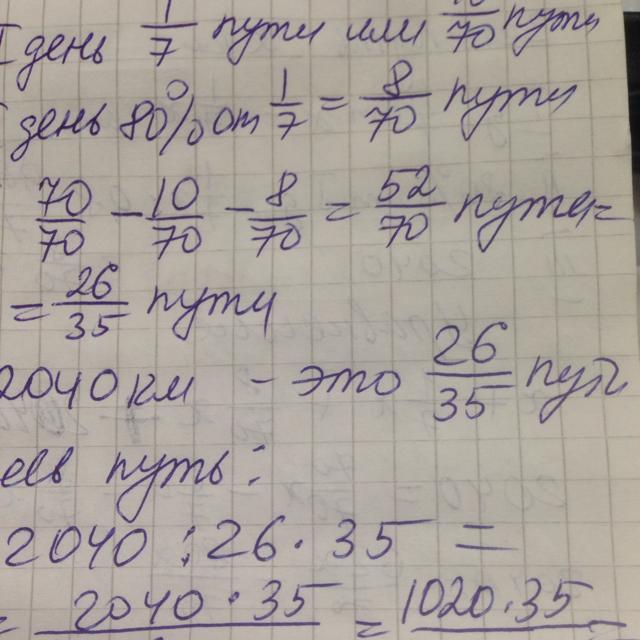 I день 1/7 пути или 10/70 пути
день 80% от 1/7 = 8/70 пути
70/70 - 10/70 - 8/70 = 52/70 пути =
= 26/35 пути
2040 км - это 26/35 пути
весь путь:
2040 : 26 · 35 =
= 2040 · 35 = 1020 · 35